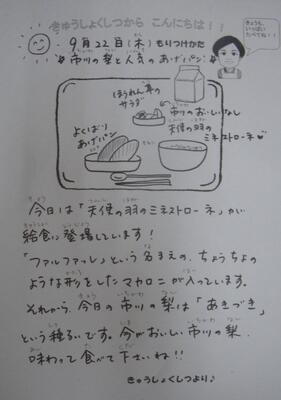 きゅうしょくしつから こんにちは！！
きょうも、
いっぱい
たべてね！！
9月22日(木) もりつけかた
市川の梨と人気のあげパン
ほうれん草の
サラダ
市川のおいしいなし
天使の羽の
ミネストローネ
よくばり
あげパン
今日は「天使の羽のミネストローネ」が
給食に登場しています！
「ファルファッレ」という名まえの、ちょうちょの
ような形をしたマカロニが入っています。
それから、今日の市川の梨は「あきづき」
という種るいです。今がおいしい市川の梨、
味わって食べて下さいね!!
きゅうしょくしつより♪